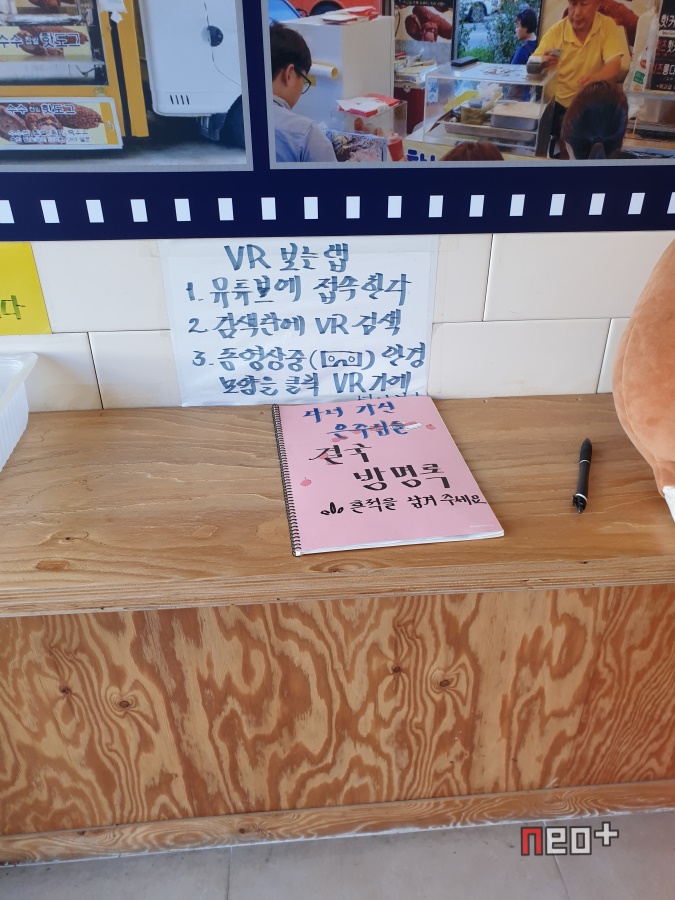 수수 핫도그
수수 핫도그
다
VR 보는 랩
1. 유튜브에 접속한다
2. 검색란에 VR 검색
3. 동영상중( ) 안경
모양을 클릭 VR 기에
다녀 가신
전국
방명록
흔적을 남겨 주세요
neo+